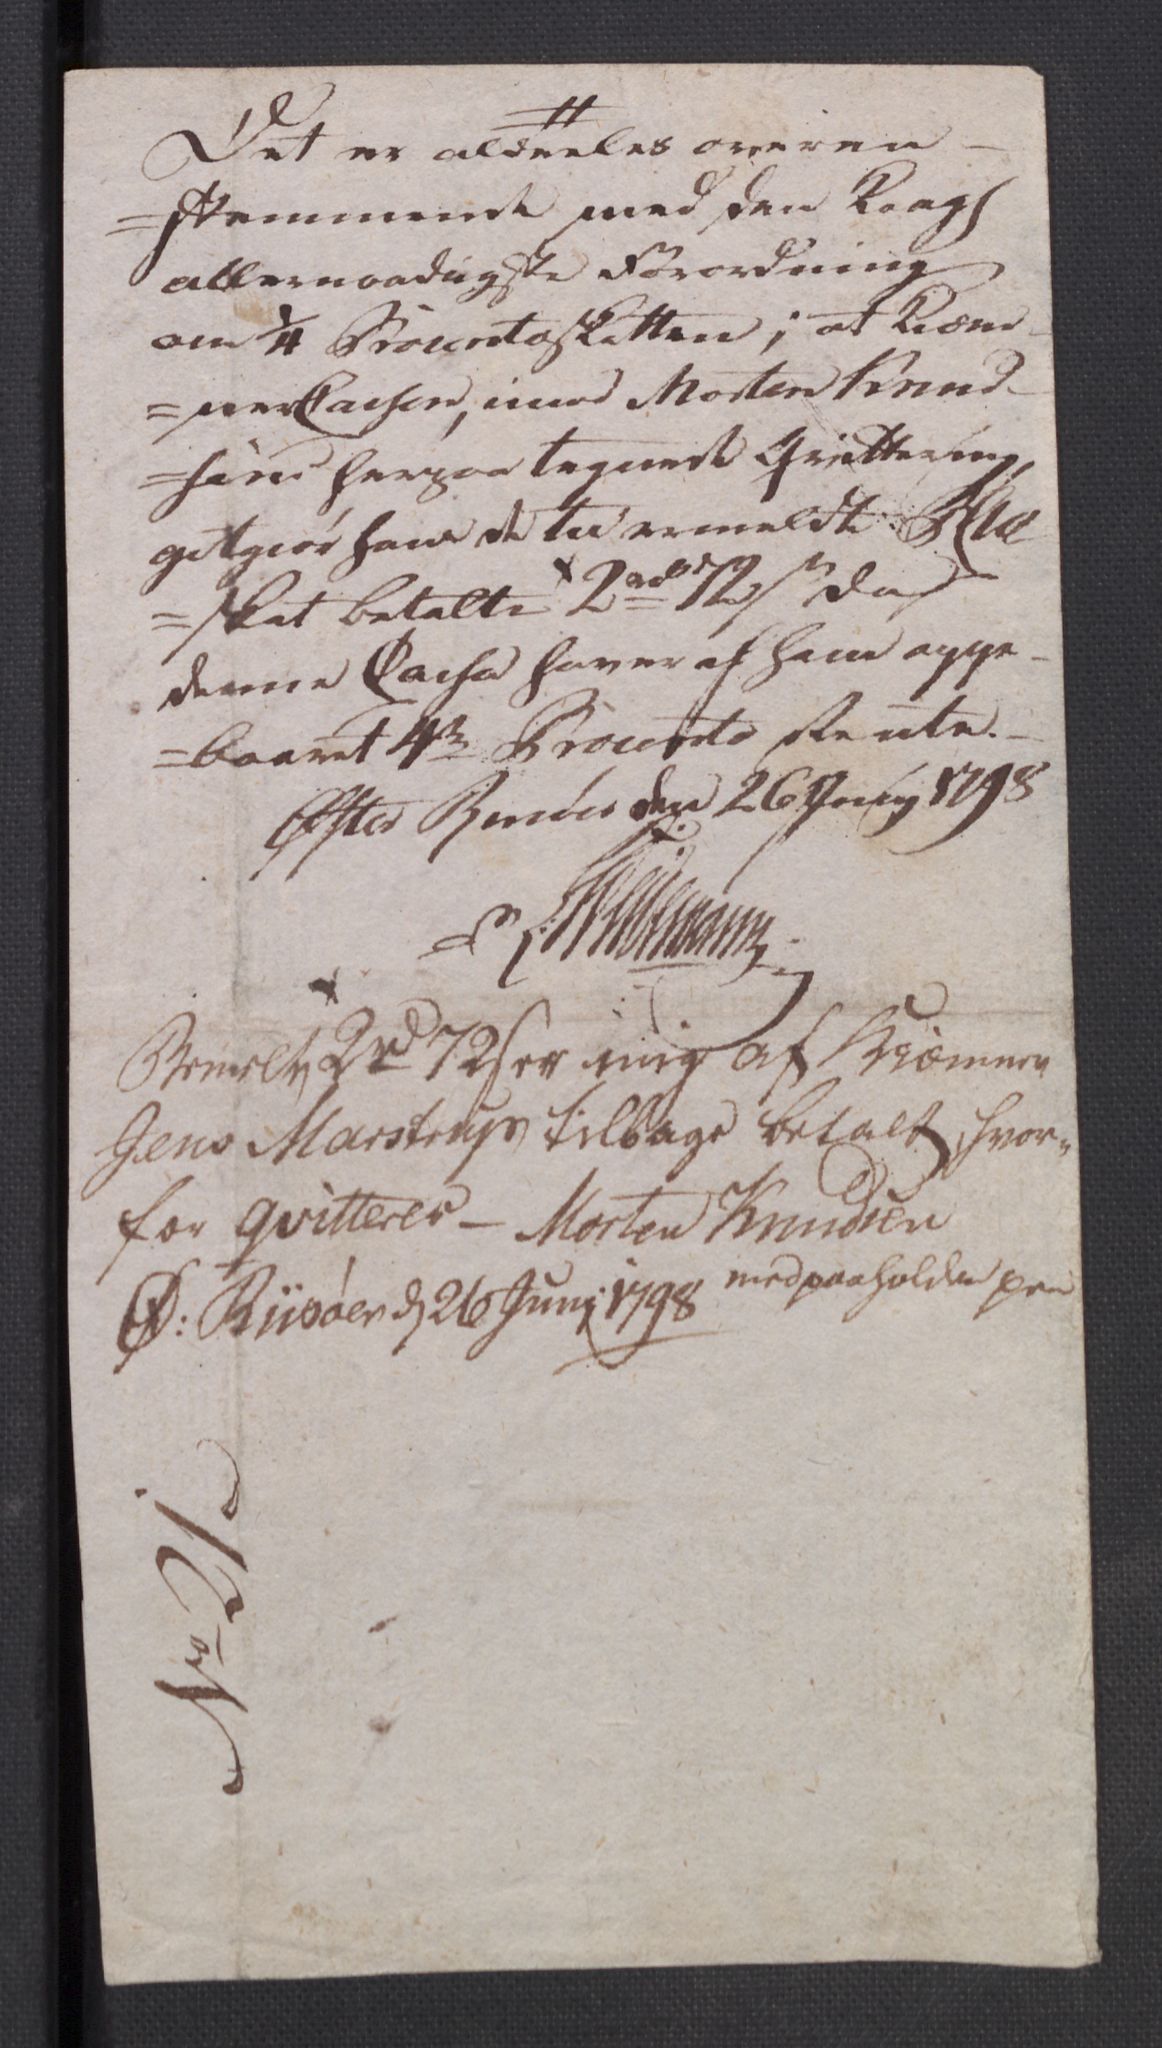 Det er aldeeles overeen-
=stemmende med den Kongl
allernaadigste Forordning
om 1/4 Procentoskatten, at Kæm-
=nerCassen, imod Morten Knud-
=sens herpaa tegnede Qvittering,
gotgiør ham de til ermeldte
=skat betalte 2rd 72s da
denne Cassa haver af ham oppe-
=baaret 4re Procento Rente.-
Øster Riisøer den 26 Junij 1798
Weidemann
Bemelte 2rd 72s er mig af Kiæmner
Jens Marstrup tilbage betalt, hvor-
for qvitteres - Morten Knudsen
med paaholden pen
Ø: Riisøer d 26 Junj 1798
No 21